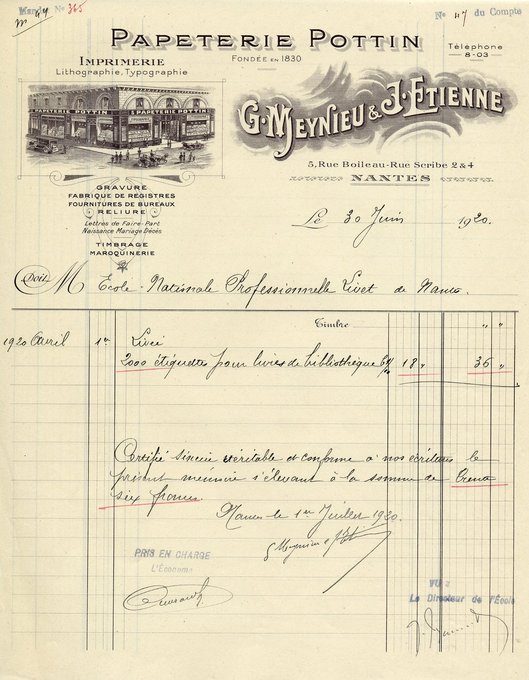 Mand. No 365
No 47 du Compte
PAPETERIE POTTIN
FONDÉE EN 1830
Téléphone
8-03
IMPRIMERIE
Lithographie, Typographie
PAPETERIE POTTIN
PAPETERIE POTTIN
G. MEYNIEU & J. ETIENNE
5, Rue Boileau-Rue Scribe 2 & 4
NANTES
GRAVURE
FABRIQUE DE REGISTRES
FOURNITURES DE BUREAUX
RELIURE
Lettres de Faire-Part
Naissance Mariage Décès
TIMBRAGE
MAROQUINERIE
Le 30 Juin 1920.
Doit M Ecole Nationale Professionnelle Livet de Nantes
Timbre " "
1920 Avril 1er Livré
2000 étiquettes pour livres de bibliothèque 18 " 36 "
Certifié sincère véritable et conforme à nos écritures le
présent mémoire s'élevant à la somme de Trente
six francs.
Nantes le 1er Juillet 1920.
G Meynieu & J Etienne
PRIS EN CHARGE
L'Économe
VU :
Le Directeur de l'École